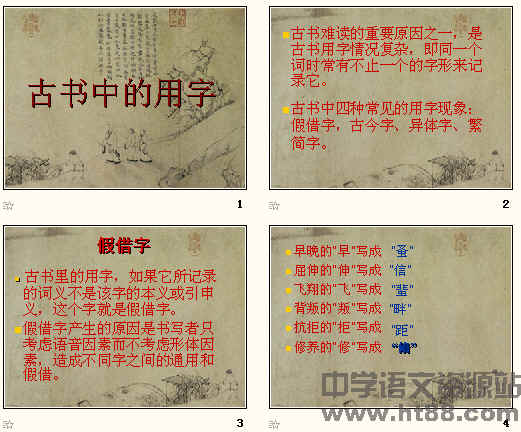 古书中的用字
1
古书难读的重要原因之一，是
古书用字情况复杂，即同一个
词时常有不止一个的字形来记
录它。
古书中四种常见的用字现象：
假借字，古今字、异体字、繁
简字。
2
假借字
古书里的用字，如果它所记录
的词义不是该字的本义或引申
义，这个字就是假借字。
假借字产生的原因是书写者只
考虑语音因素而不考虑形体因
素，造成不同字之间的通用和
假借。
3
早晚的"早"写成 "蚤"
屈伸的"伸"写成 "信"
飞翔的"飞"写成 "蜚"
背叛的"叛"写成 "畔"
抗拒的"拒"写成 "距"
修养的"修"写成
4
中学语文资源站
www.ht88.com